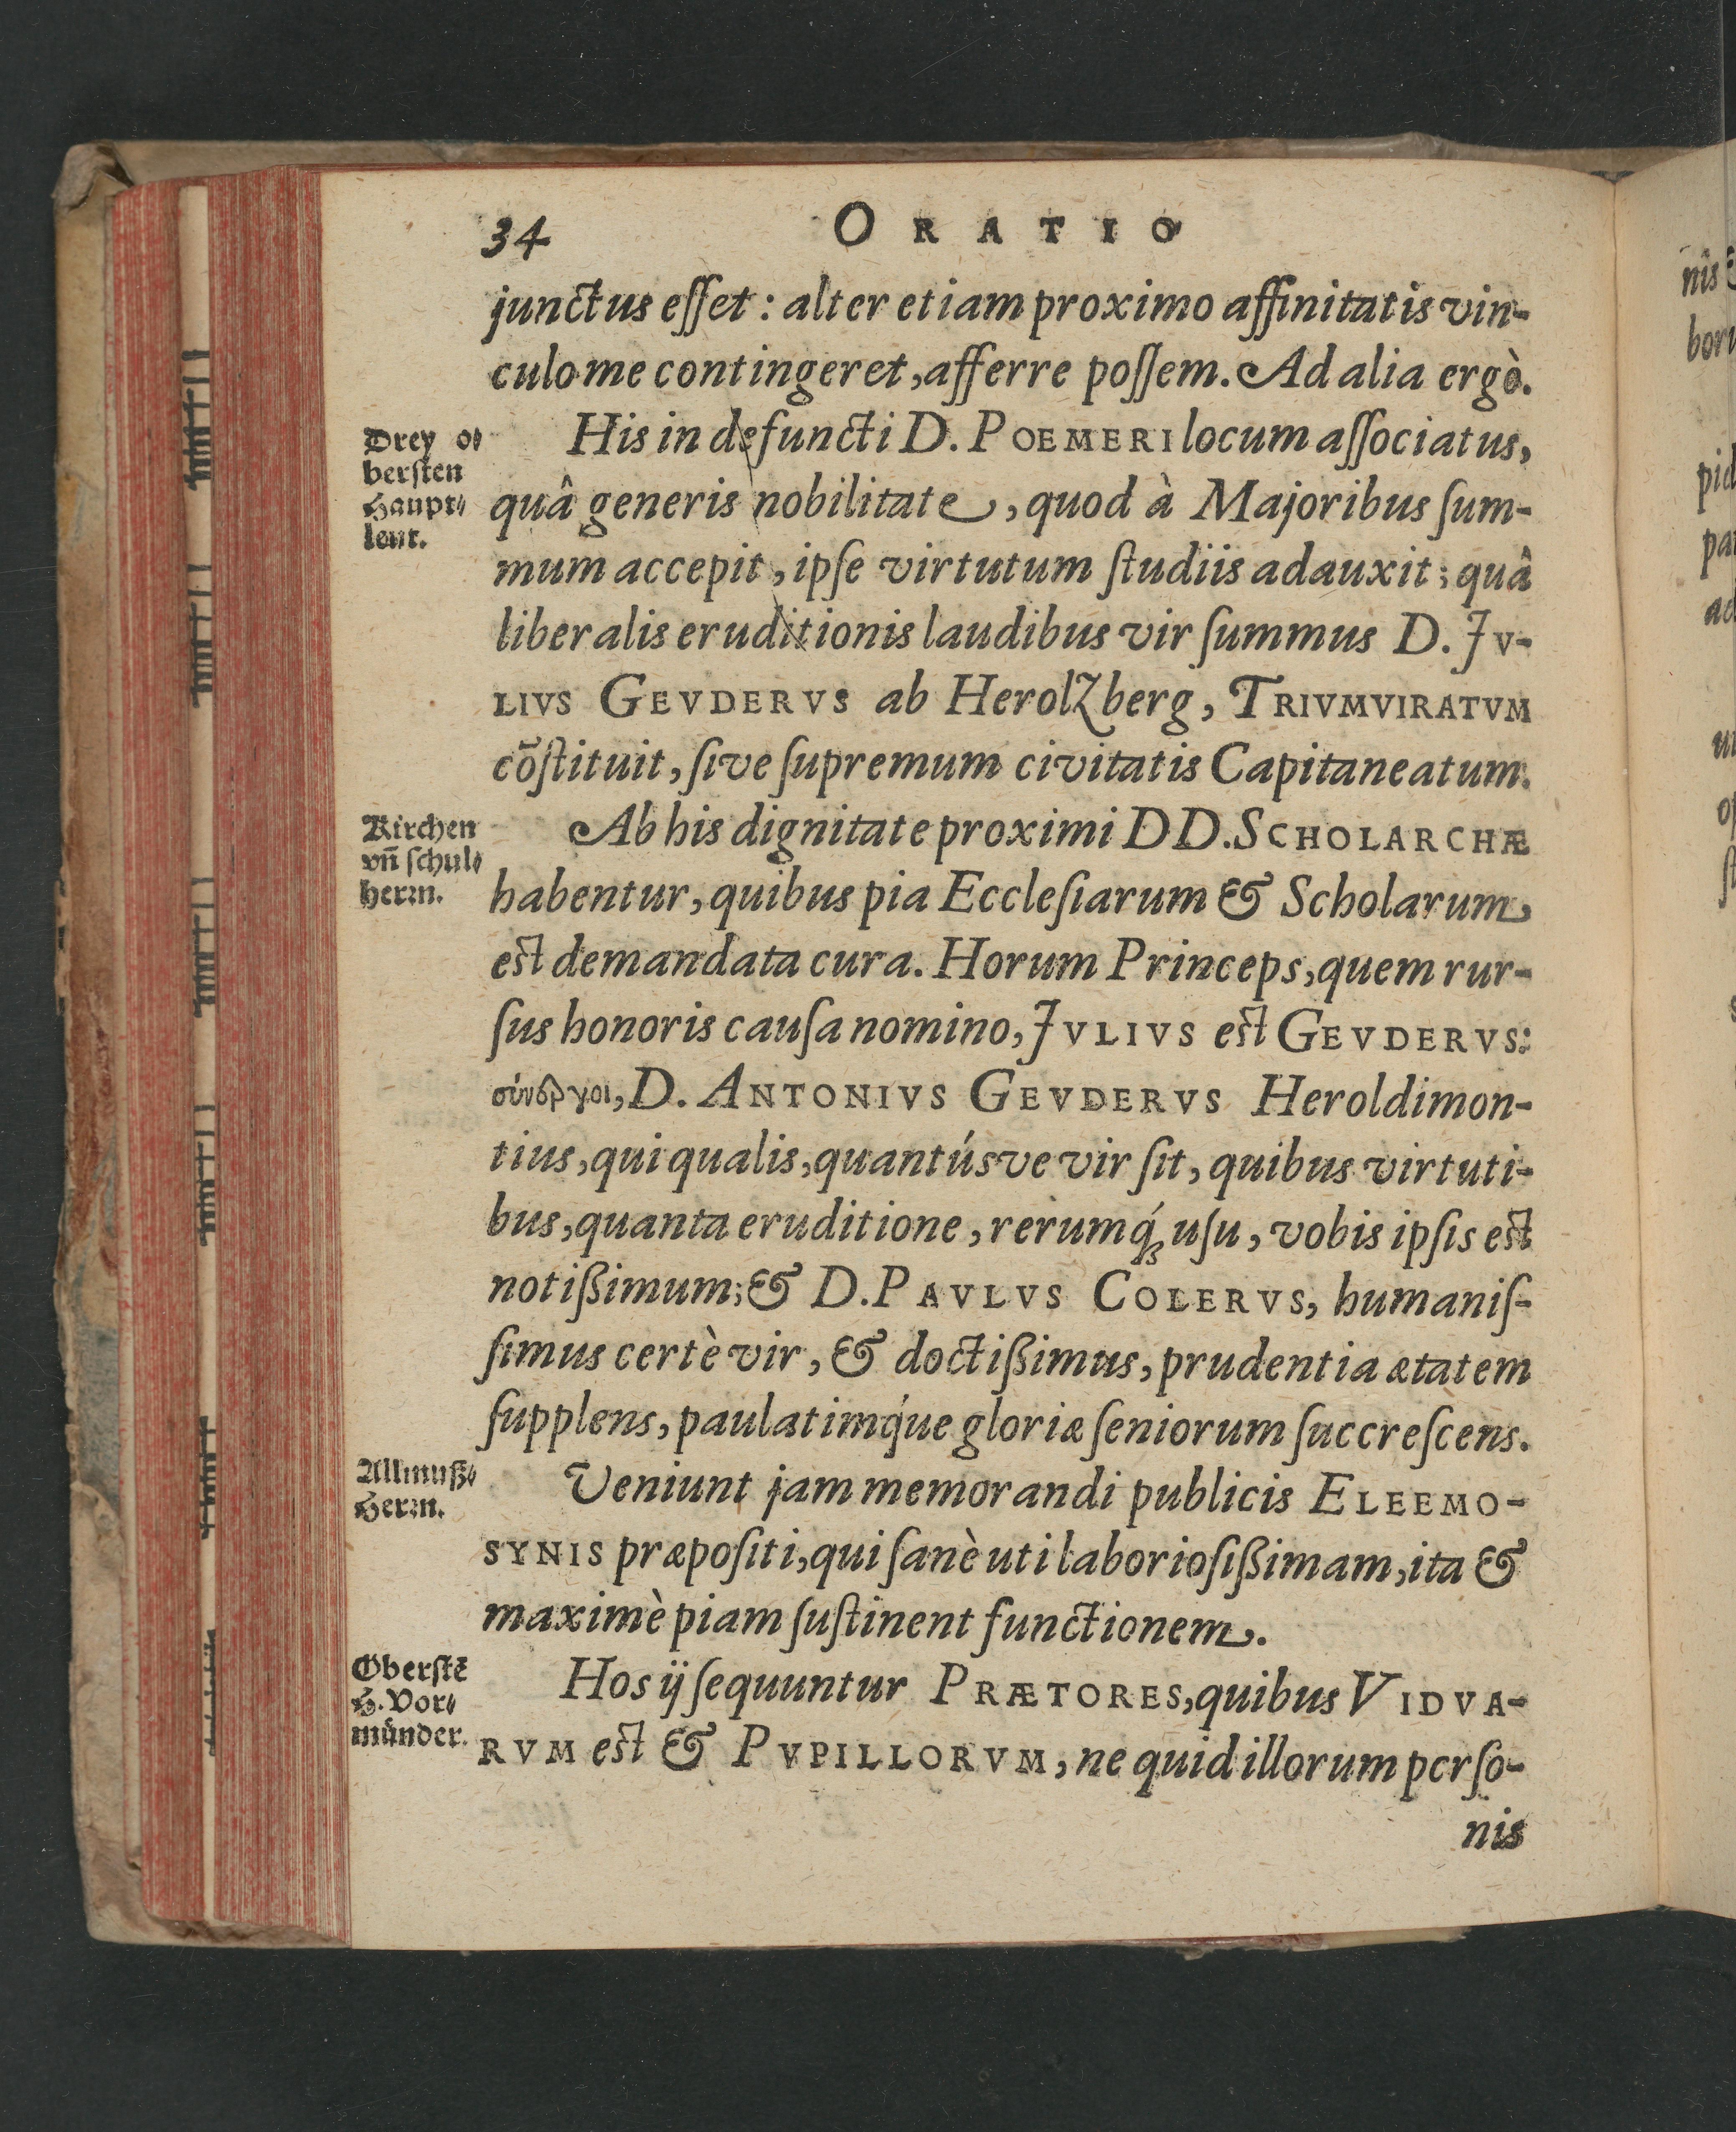 34 ORATIO
junctus eſſet: alter etiam proximo affinitatis vin-
culo me contingeret, afferre poſſem. Ad alia ergò.
Drey o⸗
berſten
Haupt⸗
leut.
His in defuncti D. POEMERI locum aſſociatus,
quâ generis nobilitate, quod à Majoribus ſum-
mum accepit, ipſe virtutum ſtudiis adauxit; quâ
liberalis eruditionis laudibus vir ſummus D. JV-
LIVS GEVDERVS ab Herolzberg, TRIVMVIRATVM
cõſtituit, ſive ſupremum civitatis Capitaneatum.
Kirchen
vñ ſchul⸗
herꝛn.
Ab his dignitate proximi DD. SCHOLARCHÆ
habentur, quibus pia Eccleſiarum & Scholarum
eſt demandata cura. Horum Princeps, quem rur-
ſus honoris cauſa nomino, JVLIVS eſt GEVDERVS:
σύνεργοι, D. ANTONIVS GEVDERVS Heroldimon-
tius, qui qualis, quantúsve vir ſit, quibus virtuti-
bus, quanta eruditione, rerumq́ꝫ uſu, vobis ipſis eſt
notißimum; & D. PAVLVS COLERVS, humaniſ-
ſimus certè vir, & doctißimus, prudentia ætatem
ſupplens, paulatimq́ue gloriæ ſeniorum ſuccreſcens.
Allmuß⸗
Herꝛn.
Veniunt jam memorandi publicis ELEEMO-
SYNIS præpoſiti, qui ſanè uti laborioſißimam, ita &
maximè piam ſuſtinent functionem.
Oberſtē
H. Vor⸗
münder.
Hos ij ſequuntur PRÆTORES, quibus VIDVA-
RVM eſt & PVPILLORVM, ne quid illorum perſo-
nis